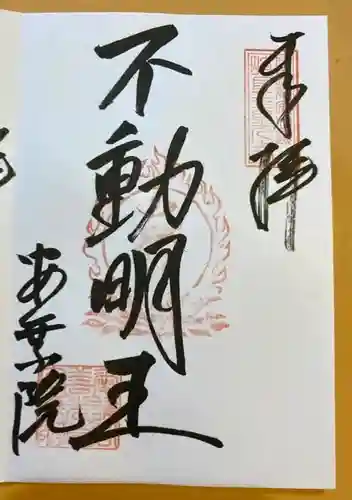 奉拝
不動明王
安養院